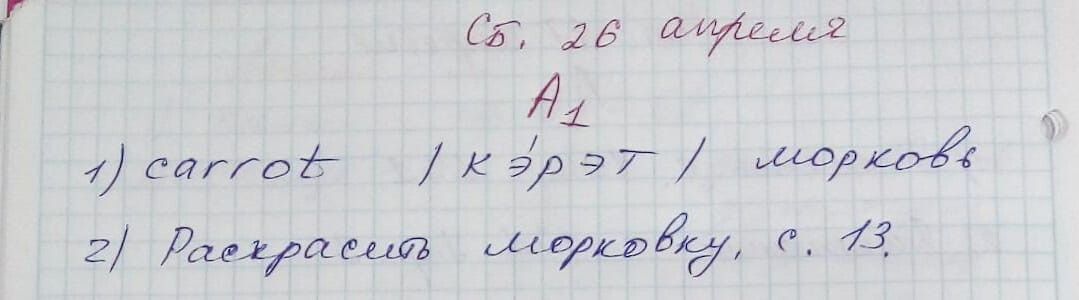 Сб. 26 апреля
A1
1) carrot /кэ́рэт/ морковь
2) Раскрасить морковку, с. 13.